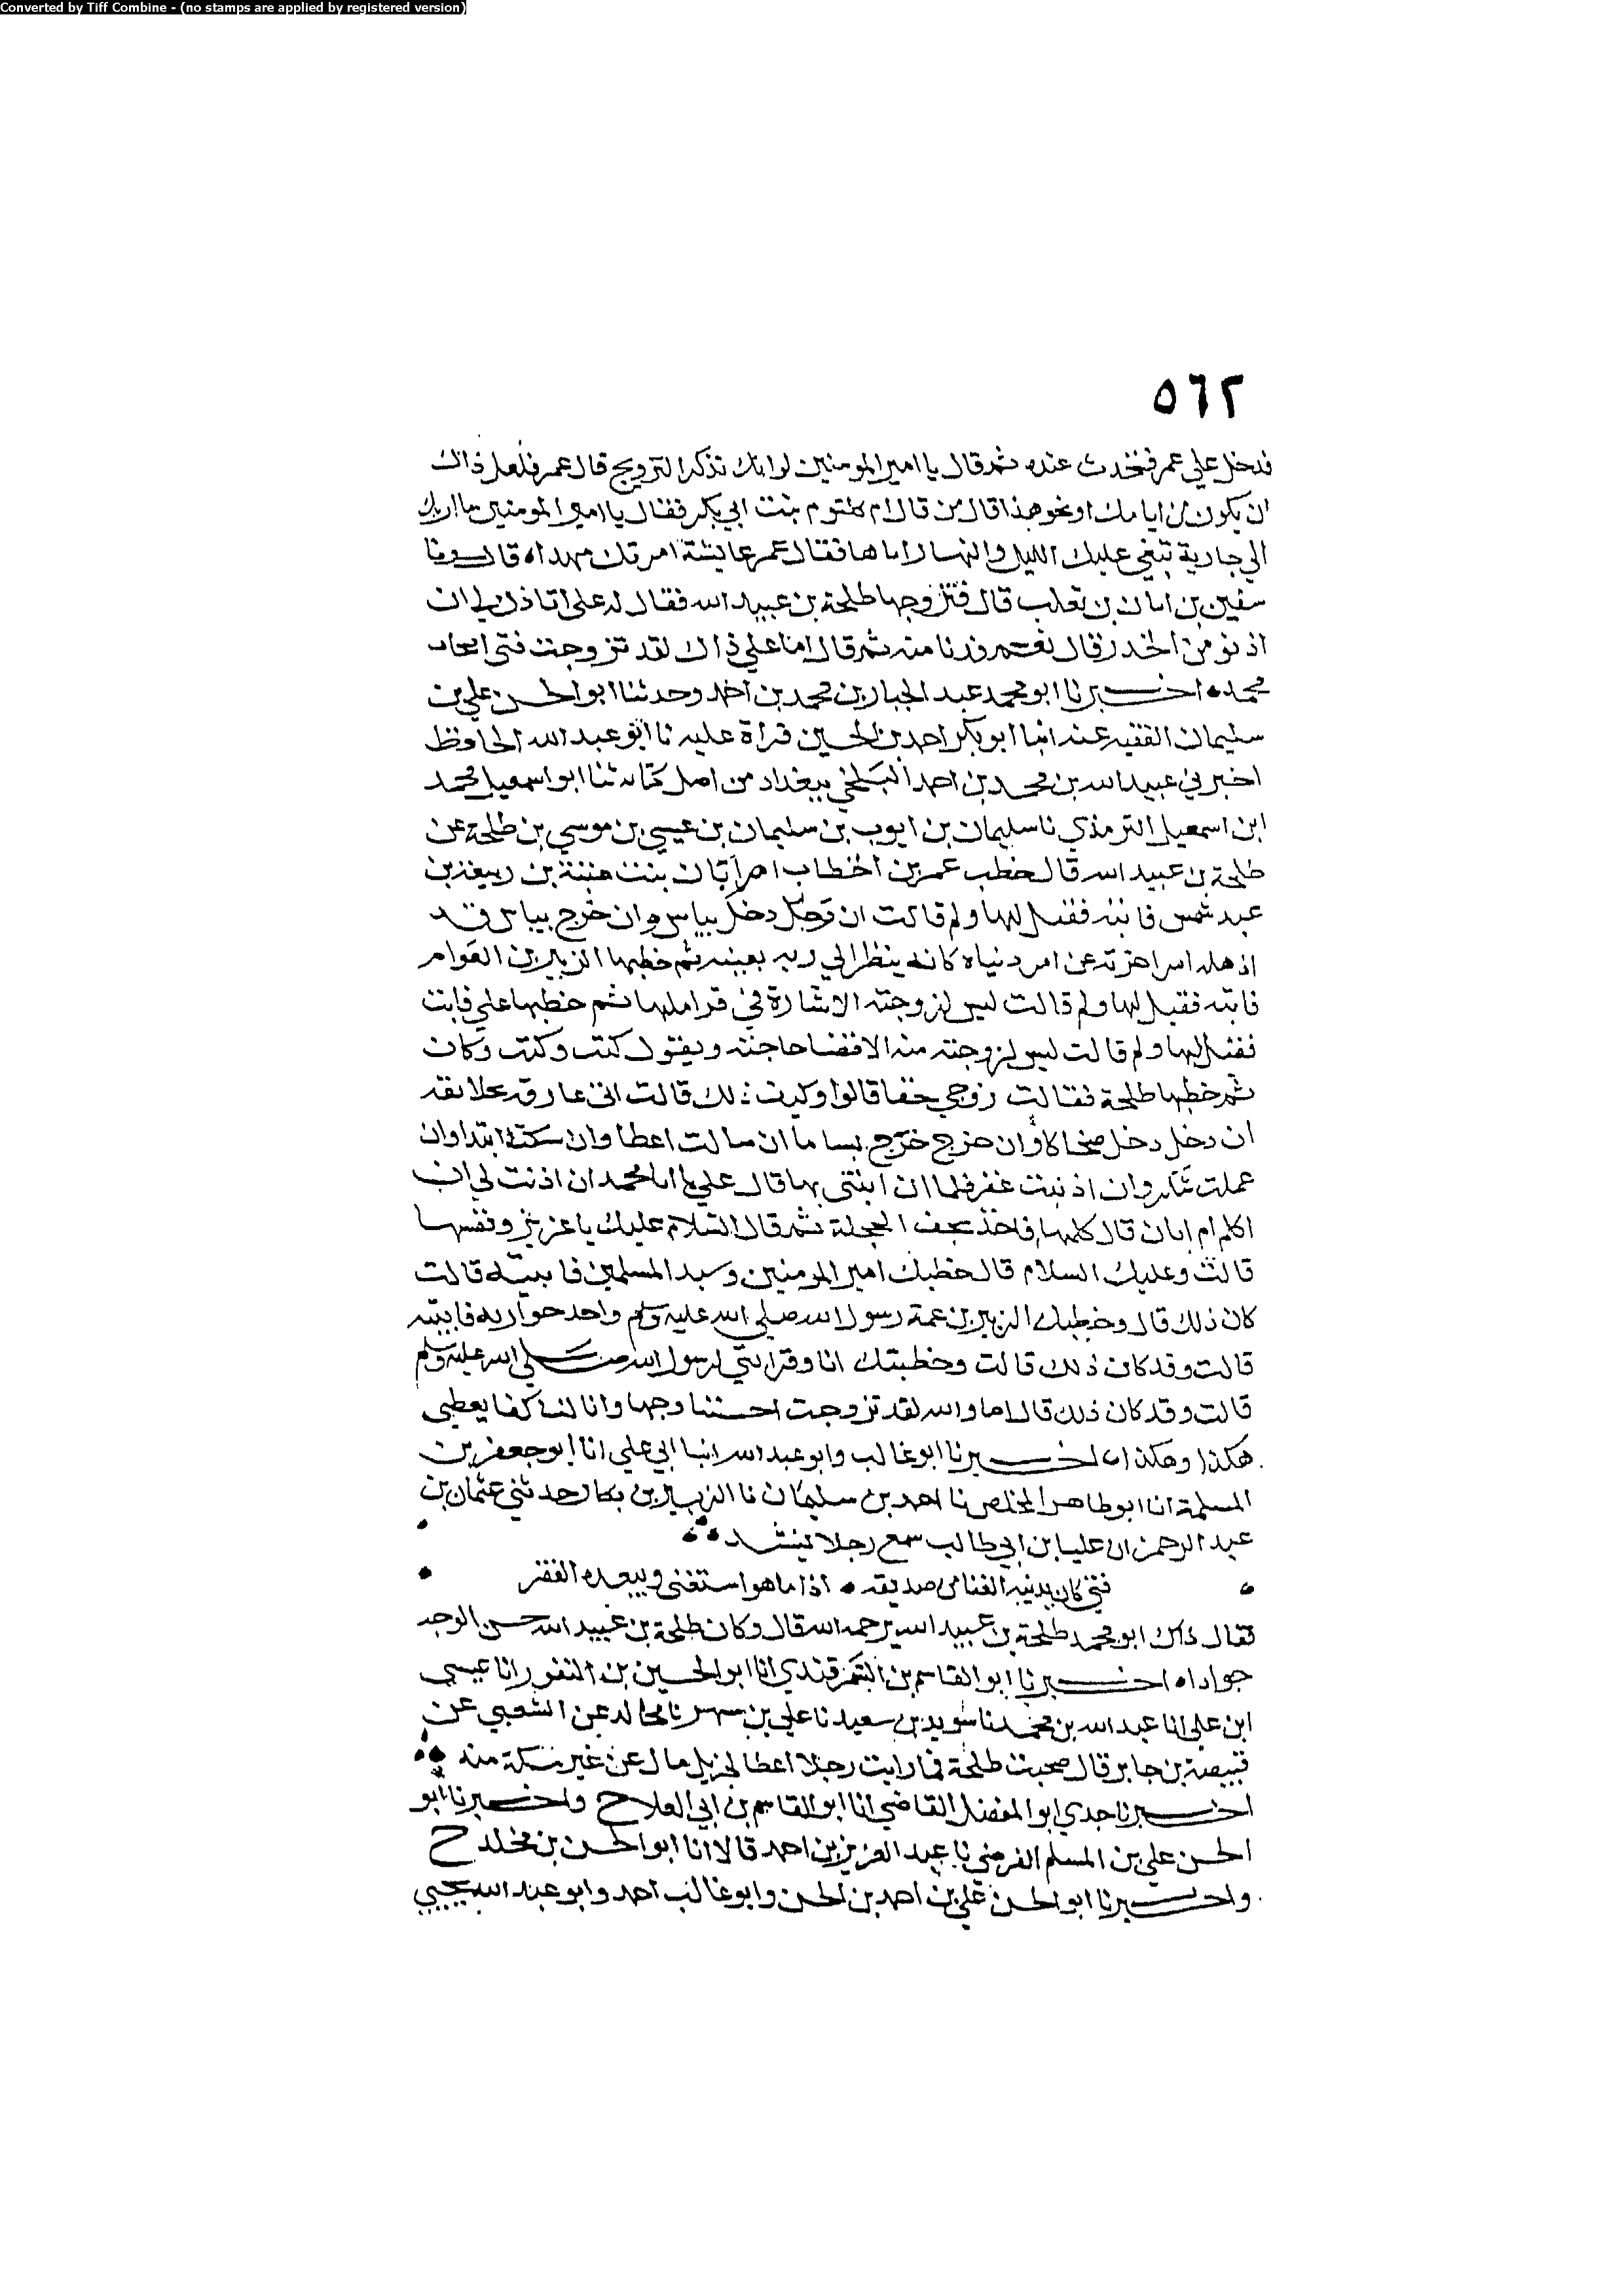 Converted by Tiff Combine - (no stamps are applied by registered version)
٥٦٢
فدخل علي عمر فتحدث عنده ثم قال يا امير المومنين لو انك تذكر التزويج قال عمر فلعل ذاك
ان يكون من ايامك او نحو هذا قال من قال ام كلثوم بنت ابي بكر فقال يا امير المومنين ما اربك
الي جارية تنعي عليك الليل والنهار اباها فقال عمر عايشة امرتك بهذا ه قال ونا
سفين بن ابان بن تعلب قال فتزوجها طلحة بن عبيد الله فقال له علي اتاذن لي ان
ادنو من الخدر قال نعم فدنا منه ثم قال اما علي ذاك لقد تزوجت فتى اصحاب
محمد ه اخبرنا ابو محمد عبد الجبار بن محمد بن احمد وحدثنا ابو الحسن علي بن
سليمان الفقيه عنه انبا ابو بكر احمد بن الحسين قراة عليه نا ابو عبد الله الحافظ
اخبرني عبيد الله بن محمد بن احمد البلخي ببغداد من اصل كتابه ثنا ابو اسمعيل محمد
ابن اسمعيل الترمذي نا سليمان بن ايوب بن سليمان بن عيسي بن موسي بن طلحة عن
طلحة بن عبيد الله قال خطب عمر بن الخطاب ام ابان بنت عتبة بن ربيعة بن
عبد شمس فابته فقيل لها ولم قالت ان دخل دخل بباس وان خرج بباس قد
اذهله امر اخرته عن امر دنياه كانه ينظر الي ربه بعينه ثم خطبها الزبير بن العوام
فابته فقيل لها ولم قالت ليس لزوجته الا شارة في قراملها ثم خطبها علي فابت
فقيل لها ولم قالت ليس لزوجته منه الا قضا حاجته ويقول كنت وكنت وكان
ثم خطبها طلحة فقالت زوجي حقا قالوا وكيف ذلك قالت اني عارفة بخلايقه
ان دخل دخل ضحاكا وان خرج خرج بساما ان سالت اعطا وان سكت ابتدا وان
عملت شكر وان اذنبت غفر فلما ان ابتنى بها قال علي يا ابا محمد ان اذنت لي ان
اكلم ام ابان قال كلمها فاخذ سجف الحجلة ثم قال السلام عليك يا عزيز ونفسها
قالت وعليك السلام قال خطبك امير المومنين وسيد المسلمين فابيته قالت
كان ذلك قال وخطبك الزبير بن عمة رسول الله صلي الله عليه وسلم واحد حواريه فابيته
قالت وقد كان ذلك قالت وخطبتك انا وقرابتي لرسول الله صلي الله عليه وسلم
قالت وقد كان ذلك قال اما والله لقد تزوجت احسننا وجها وابذلنا كفا يعطي
هكذا وهكذا ه اخبرنا ابو غالب وابو عبد الله انبا ابي علي انا ابو جعفر بن
المسلمة انا ابو طاهر المخلص نا احمد بن سليمان نا الزبير بن بكار حدثني عثمان بن
عبد الرحمن ان عليا بن ابي طالب سمع رجلا ينشد
فتى كان يدنيه الغنا من صديقه ه اذا ما هو استغنى ويبعده الفقر
فقال ذاك ابو محمد طلحة بن عبيد الله يرحمه الله قال وكان طلحة بن عبيد الله حسن الوجه
جوادا ه اخبرنا ابو القاسم بن السمرقندي انا ابو الحسين بن النقور انا عيسى
ابن علي انا عبد الله بن محمد نا سويد بن سعيد نا علي بن مسهر نا مجالد عن الشعبي عن
قبيصة بن جابر قال صحبت طلحة فما رايت رجلا اعطا لجزيل مال عن غير مسكة منه
اخبرنا جدي ابو المفضل القاضي انا ابو القاسم بن ابي العلاح واخبرنا ابو
الحسن علي بن المسلم الفرضي نا عبد العزيز بن احمد قالا انا ابو الحسن بن مخلد ح
واخبرنا ابو الحسن علي بن احمد بن الحسن وابو غالب احمد وابو عبد الله يحيي